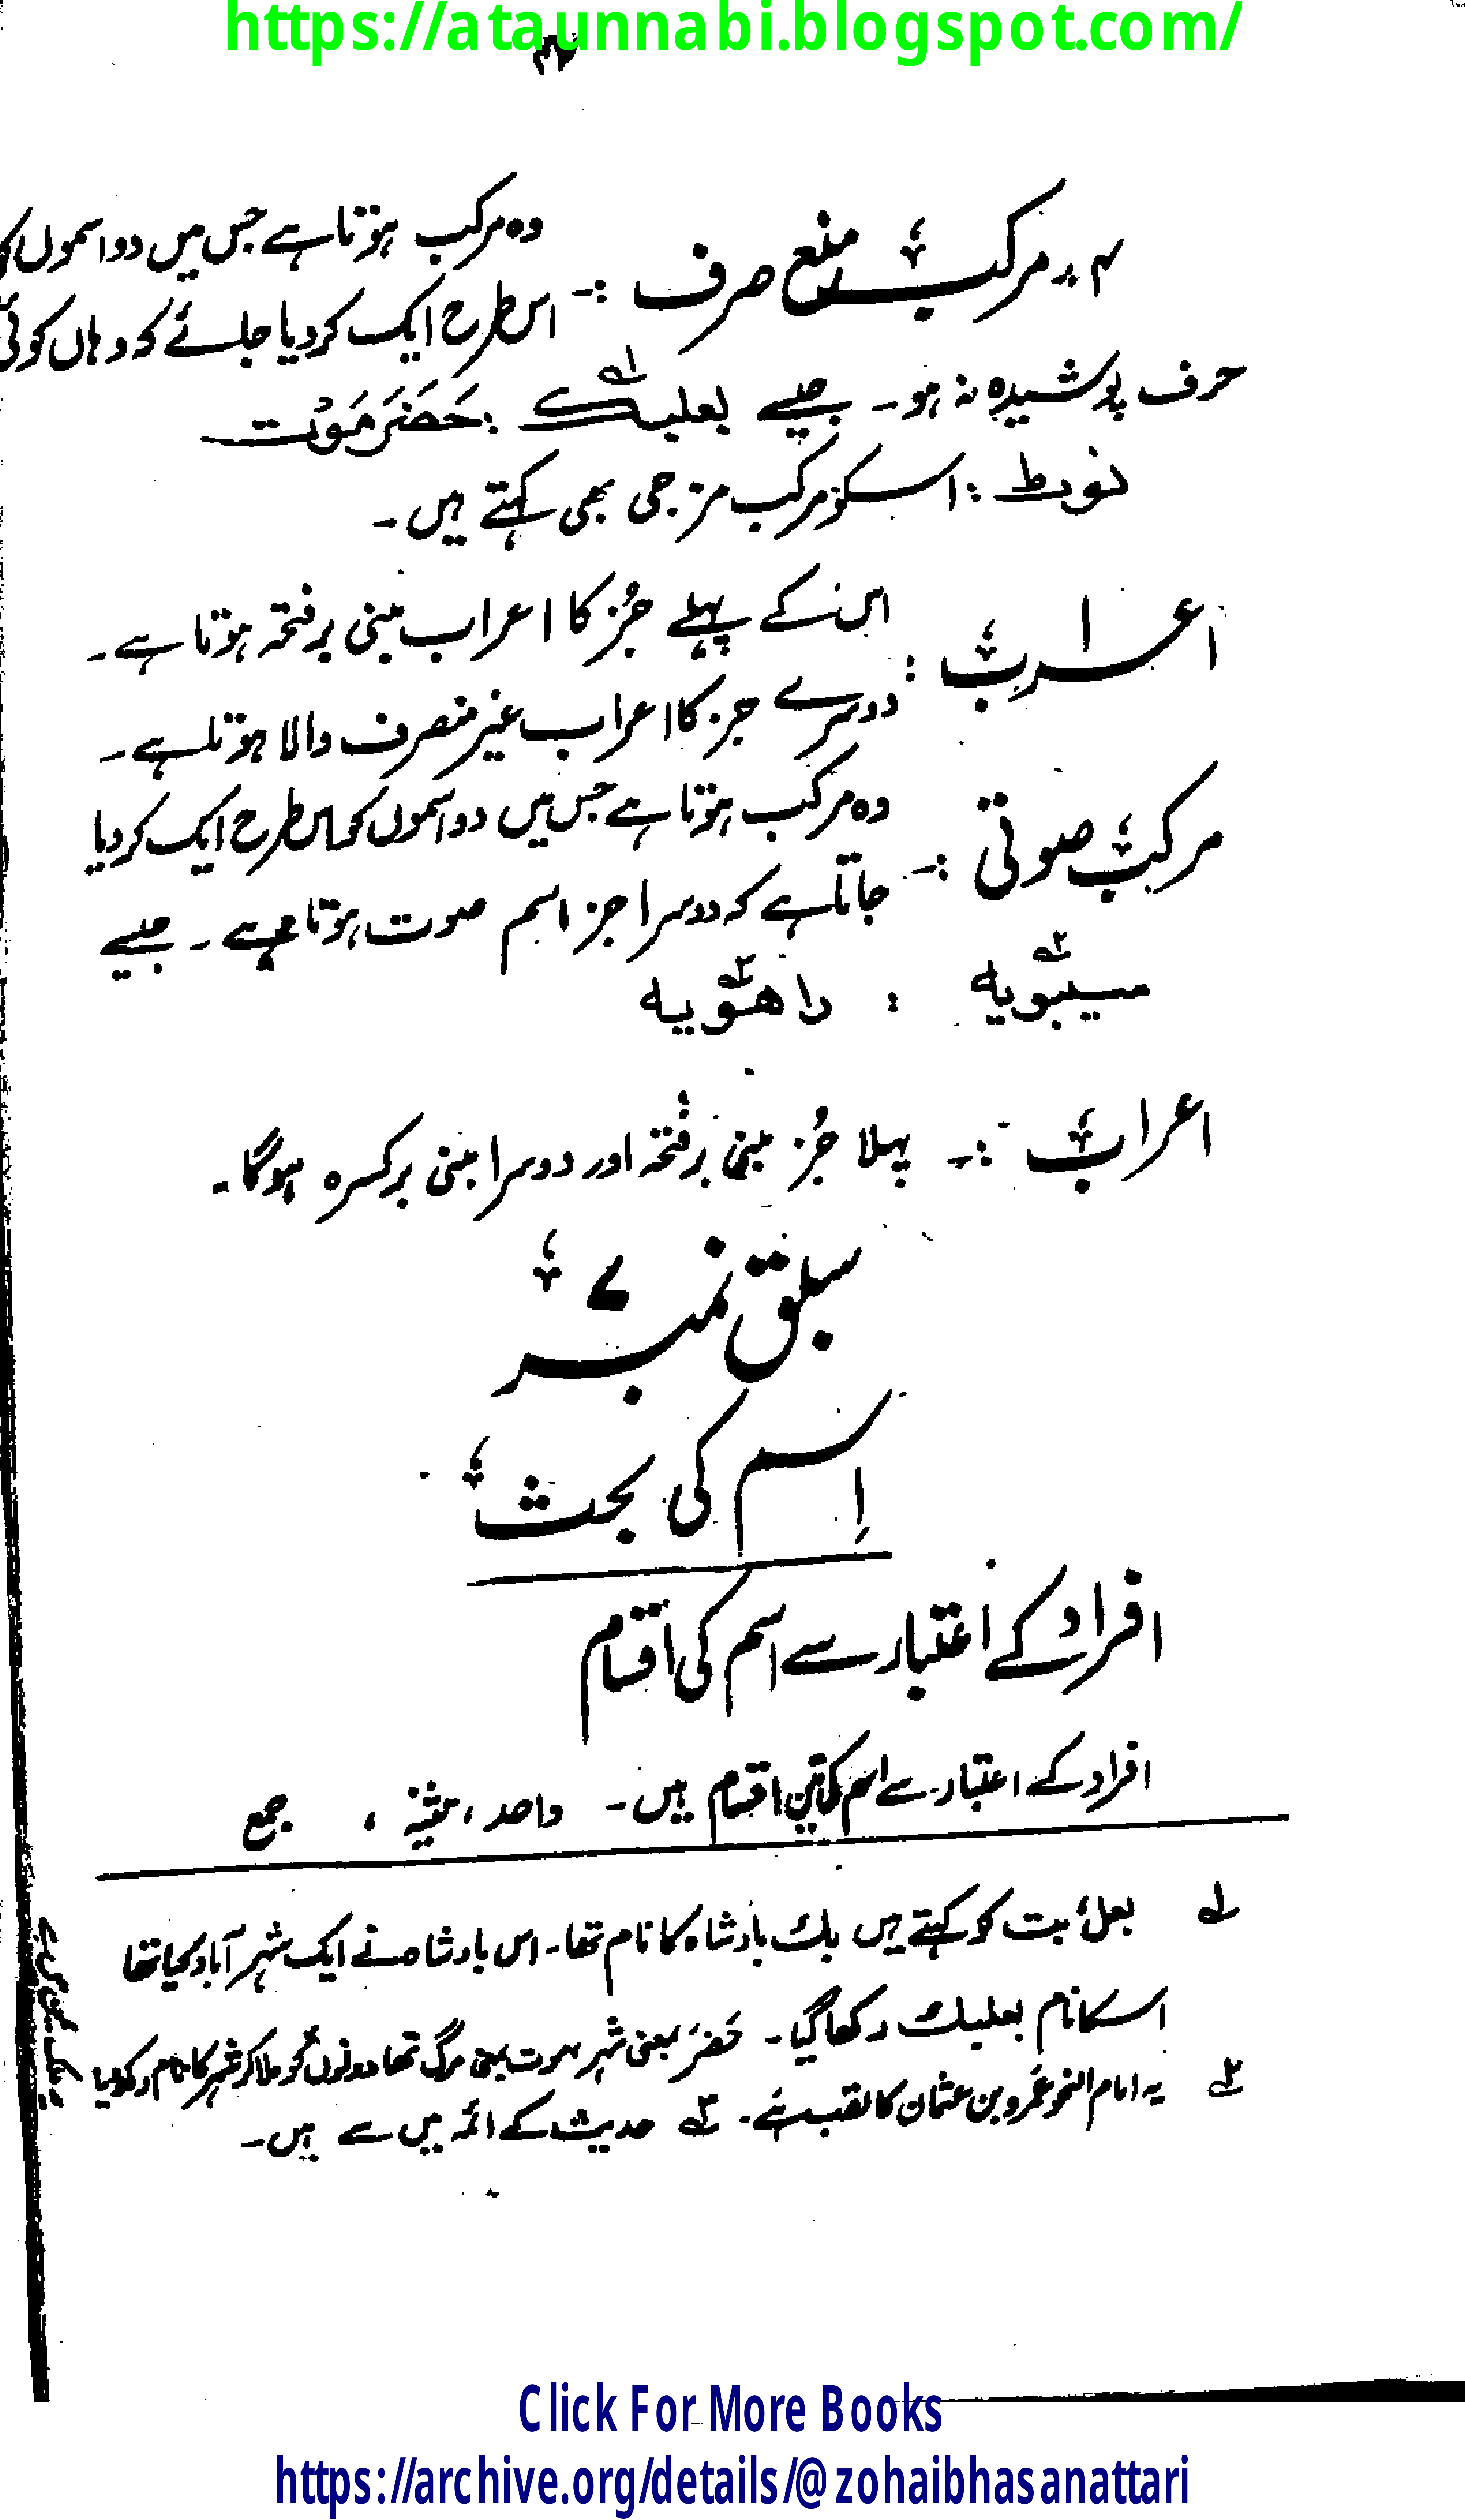 https://ataunnabi.blogspot.com/
۳۲
۴۔ مرکب منع صرف :۔ وہ مرکب ہوتا ہے جس میں دو اسموں کو
اس طرح ایک کردیا جائے کہ وہاں کوئی
حرف پوشیدہ نہ ہو۔ جیسے بعلبك۱ : حَضَرَمَوْت
نوٹ : اسکو مرکب مزجی بھی کہتے ہیں۔
اعراب : اس کے پہلے جُز کا اعراب مبنی بر فتحہ ہوتا ہے۔
دوسرے جز کا اعراب غیر منصرف والا ہوتا ہے۔
مرکب صوتی :۔ وہ مرکب ہوتا ہے جس میں دو اسموں کو اس طرح ایک کردیا
جاتا ہے کہ دوسرا جز اسم صوت ہوتا ہے۔ جیسے
سیبویہ۲ : راھویہ۳
اعراب :۔ پہلا جُز مبنی بر فتحہ اور دوسرا مبنی بر کسرہ ہوگا۔
سبق نمبر ۷
اِسم کی بحث
افراد کے اعتبار سے اسم کی اقسام
افراد کے اعتبار سے اسم کی تین اقسام ہیں۔ واحد، تثنیہ، جمع
۱ بعل، بت کو کہتے ہیں بك بادشاہ کا نام تھا۔ اس بادشاہ نے ایک شہر آباد کیا تھا
اسکا نام بعلبك رکھا گیا۔ حَضَرَ بمعنی شہر موت بمعنی مرگ تھا دونوں کو ملا کر شہر کا نام رکھ دیا
۲ یہ امام النحو عمرو بن عثمان کا لقب ہے۔ ۳ حدیث کے ائمہ میں سے ہیں۔
Click For More Books
https://archive.org/details/@zohaibhasanattari